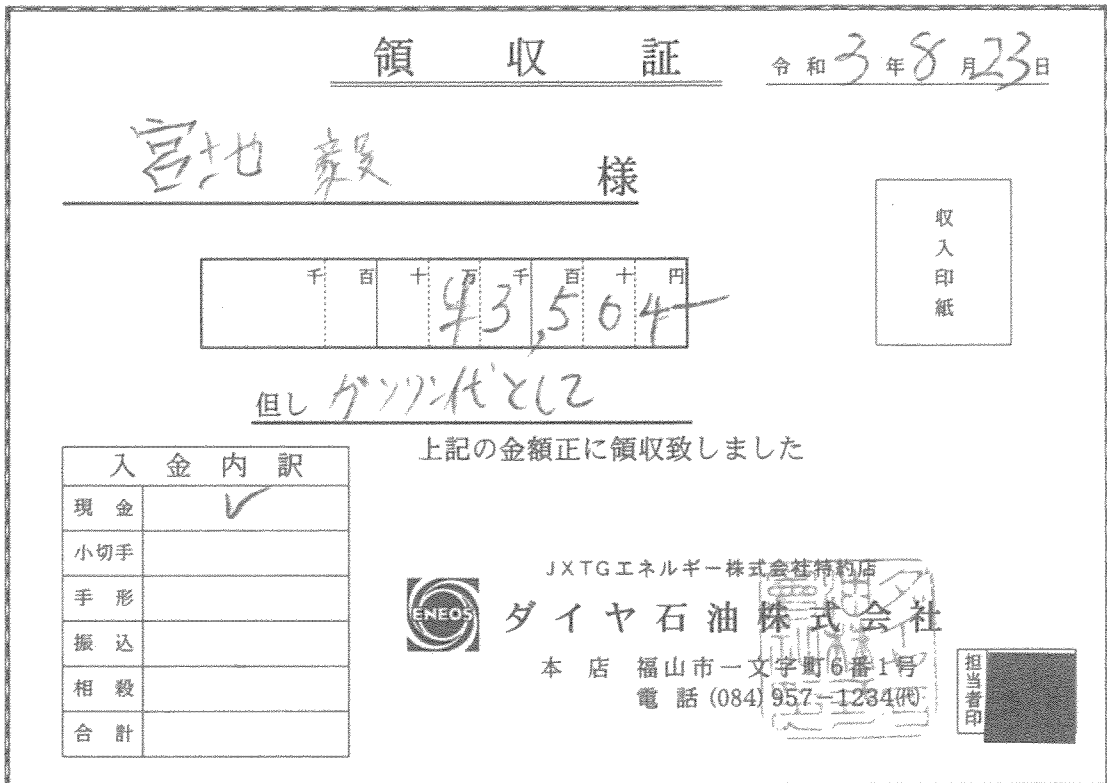 領収証
令和3年8月23日
宮地 毅 様
千 百 十 万 千 百 十 円
¥43,504
但し ガソリン代として
上記の金額正に領収致しました
収入印紙
入金内訳
現金 ✓
小切手
手形
振込
相殺
合計
JXTGエネルギー株式会社特約店
ENEOS
ダイヤ石油株式会社
本店 福山市一文字町6番1号
電話 (084) 957-1234(代)
担当者印